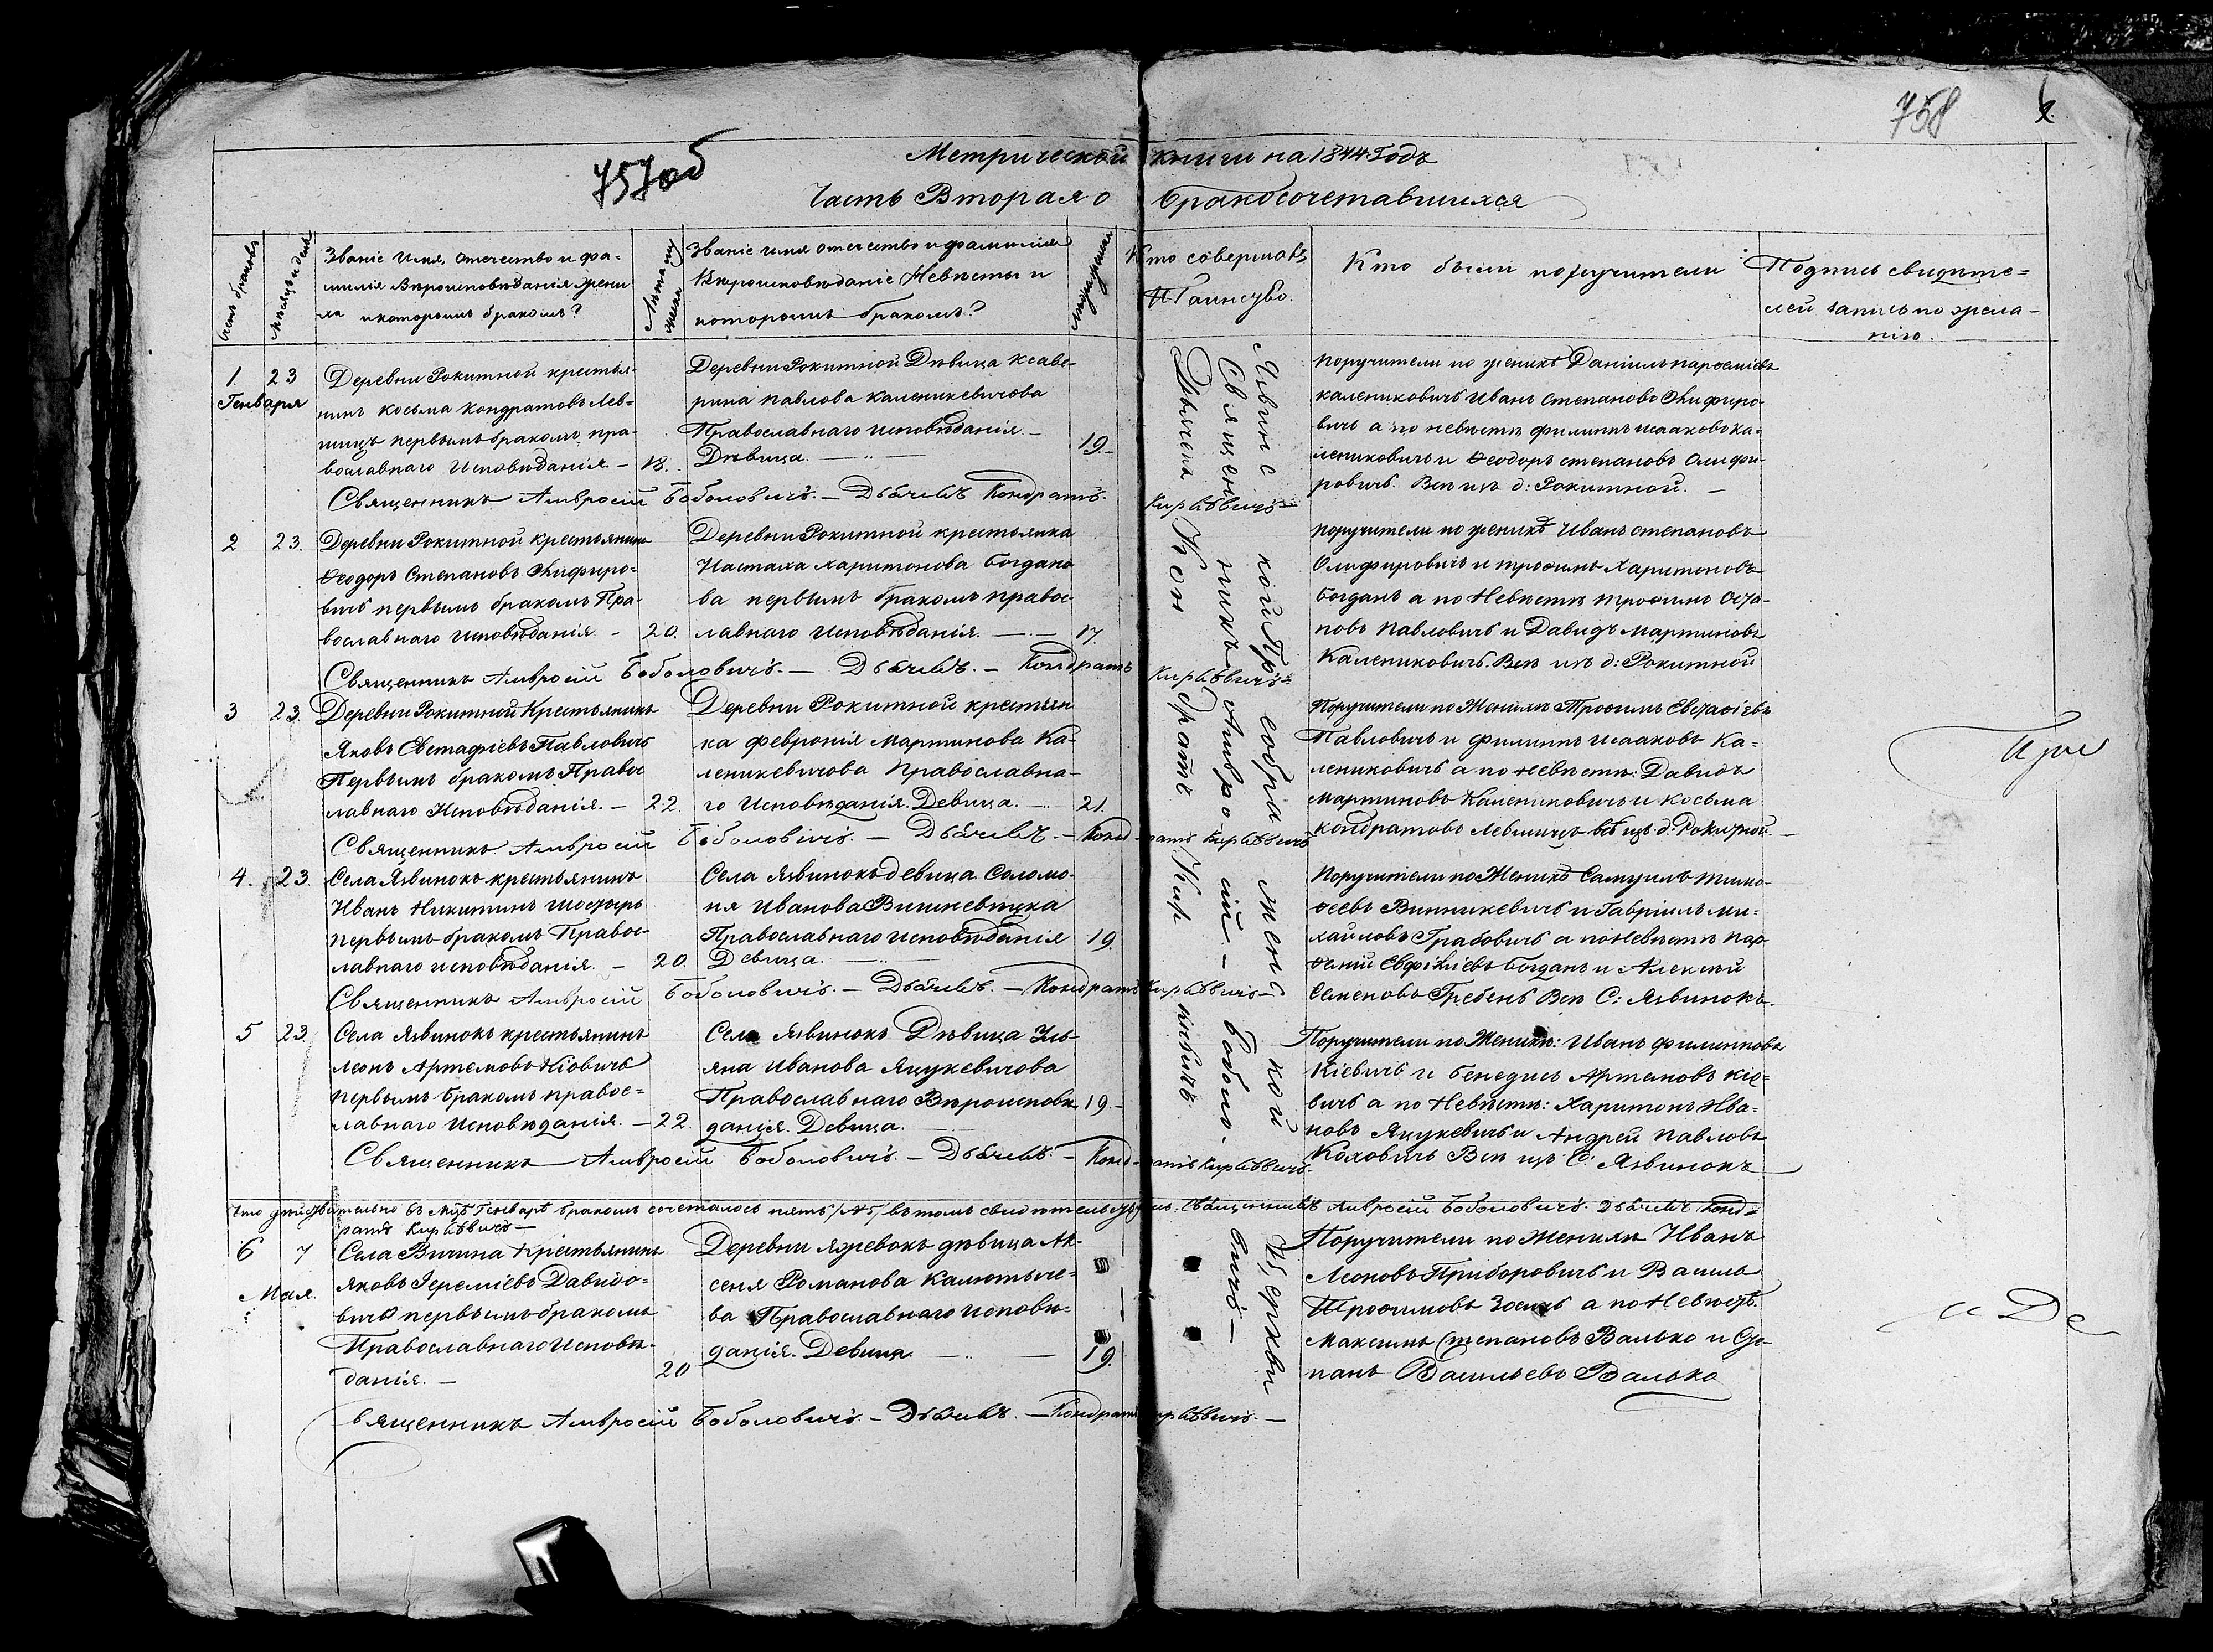 758
757об
Метрической книги на 1844 Годъ
Часть Вторая о бракосочетавшихся
Счетъ браковъ
Мѣсяцъ и день
Званіе Имя, отечество и фа-
милія Вѣроисповѣданія жени
ха и которымъ бракомъ?
Лѣта жениха
Званіе имя отечество и фамилія
Вѣроисповѣданіе Невѣсты и
которымъ бракомъ?
Кто совершалъ
Таинство.
Кто были поручители
Подпись свидѣте-
лей запись по жела-
нію
1. 23
Генваря
Деревни Рокитной крестья-
нинъ Косьма Кондратовъ Лев-
шицъ первымъ бракомъ, пра-
вославнаго Исповѣданія. — 18.
Деревни Рокитной Дѣвица Ксаве-
рина Павлова Каленикевичова
Православнаго исповѣданія. —
Дѣвица. — 19.
Поручители по женихѣ Даніилъ Парфеніевъ
Календиковичъ Иванъ Степановъ Олифиро-
вичъ а по невѣстѣ Филиппъ Исааковъ Ка-
лениковичъ и Ѳеодоръ Степановъ Олифи-
ровичъ. Всѣ изъ д: Рокитной. —
Священникъ Амвросій Боболовичъ. — Дьячекъ Кондратъ Кирѣевичъ —
2 23.
Деревни Рокитной Крестьянинъ
Ѳеодоръ Степановъ Олифиро-
вичъ первымъ бракомъ Пра-
вославнаго исповѣданія. — 20.
Деревни Рокитной крестьянка
Настаха Харитонова Богдано
ва первымъ бракомъ правос-
лавнаго исповѣданія. — 17.
Поручители по женихѣ Иванъ Степановъ
Олифировичъ и Трофимъ Харитоновъ
Богданъ а по Невѣстѣ Трофимъ Оста-
повъ Павловичъ и Давидъ Мартиновъ
Калениковичъ. Всѣ изъ д: Рокитной
Священникъ Амвросій Боболовичъ. — Дьячекъ. — Кондратъ Кирѣевичъ —
3 23.
Деревни Рокитной Крестьянинъ
Яковъ Евстафіевъ Павловичъ
Первымъ бракомъ Правос
лавнаго Исповѣданія. — 22.
Деревни Рокитной крестьян
ка Февронія Мартинова Ка-
леникевичова Православна-
го Исповѣданія. Девица. — 21.
Поручители по Женихѣ Трофимъ Евстафіевъ
Павловичъ и Филиппъ Исааковъ Ка-
лениковичъ а по невѣстѣ: Давидъ
Мартиновъ Калениковичъ и Косьма
Кондратовъ Левшицъ всѣ изъ д: Рокитной —
Священникъ Амвросій Боболовичъ. — Дьячекъ. — Кондратъ Кирѣевичъ
4. 23.
Села Язвинокъ крестьянинъ
Иванъ Никитинъ
первымъ бракомъ Правос-
лавнаго исповѣданія. — 20.
Села Язвинокъ девица Соломо-
нія Иванова Вишневтцка
Православнаго исповѣданія 19.
Девица. —
Поручители по Женихѣ Самуилъ Тимо-
ѳеевъ Винникевичъ и Гавріилъ Ми-
хайловъ Грабовичъ а по Невѣстѣ Пар-
ѳеній Евфиміевъ Богданъ и Алексѣй
Семеновъ Гребень Всѣ С: Язвинокъ.
Священникъ Амвросій Боболовичъ. — Дьячекъ. — Кондратъ Кирѣевичъ —
5 23.
Села Язвинокъ крестьянинъ
Леонъ Артемовъ Кіовичъ
первымъ бракомъ правос-
лавнаго исповѣданія. — 22.
Села Язвинокъ Дѣвица Уль-
яна Иванова Яцукевичова
Православнаго Вѣроисповѣ 19. —
данія. Девица. —
Поручители по Женихѣ: Иванъ Филипповъ
Кіевичъ и Бенедисъ Артемовъ Кіе-
вичъ а по Невѣстѣ: Харитонъ Ива-
новъ Яцукевичъ и Андрей Павловъ
Коховичъ Всѣ изъ С: Язвинокъ
Священникъ — Амвросій Боболовичъ. — Дьячекъ. — Кондратъ Кирѣевичъ.
Что дѣйствительно въ Мцѣ Генварѣ бракомъ сочеталось пять /№5/ въ томъ свидѣтельствуемъ. Священникъ Амвросій Боболовичъ. Дьячекъ Конд-
ратъ Кирѣевичъ —
6 7
Мая.
Села Вичина Крестьянинъ
Яковъ Іереміевъ Давидо-
вичъ первымъ бракомъ
Православнаго Исповѣ-
данія. — 20
Деревни Яжевокъ дѣвица Ак-
сеня Романова Калютыче-
ва Православнаго исповѣ-
данія. Девица — 19.
Поручители по Женихѣ Иванъ
Леоновъ Приборовичъ и Василь
Трофимовъ а по Невѣстѣ.
Максимъ Степановъ Валько и Сте-
панъ Васильевъ Валько
Священникъ Амвросій Боболовичъ. — Дьячекъ. — Кондратъ Кирѣевичъ. —
Язвинской Пр ображенской Церкви
Священникъ Амвросій — Боболовичъ —
Дьячекъ Кондратъ Кирѣевичъ